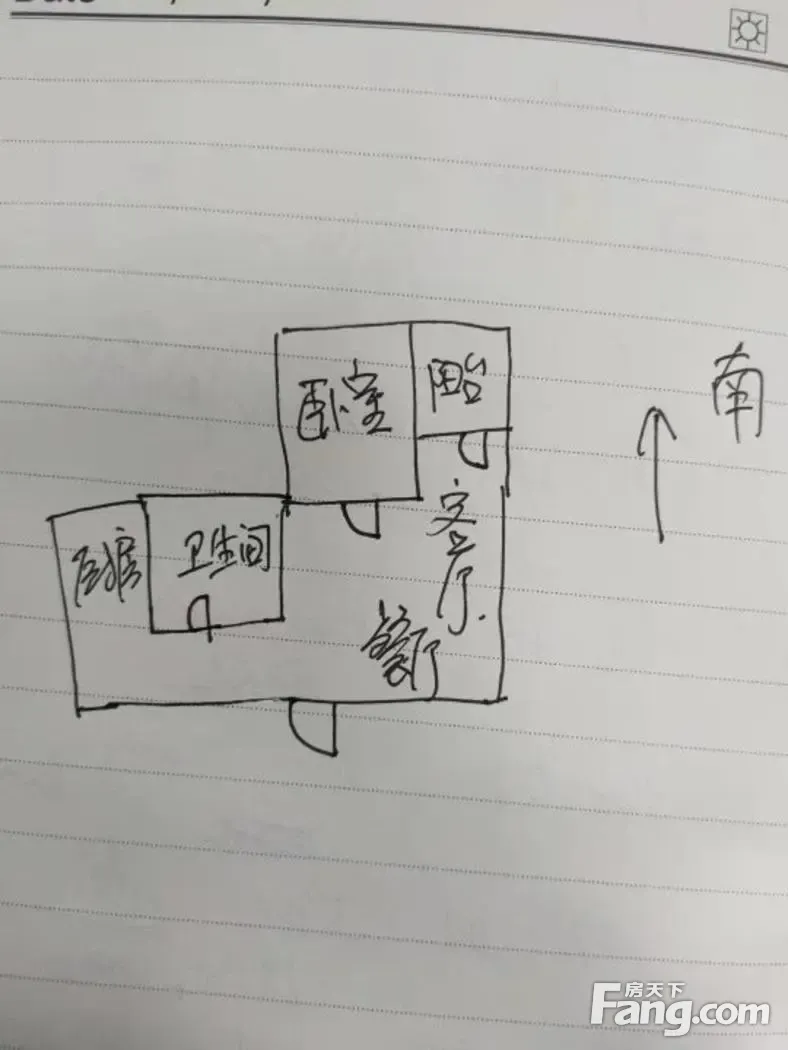 南
卧室
阳台
客厅
卫生间
餐厅
房天下
Fang.com